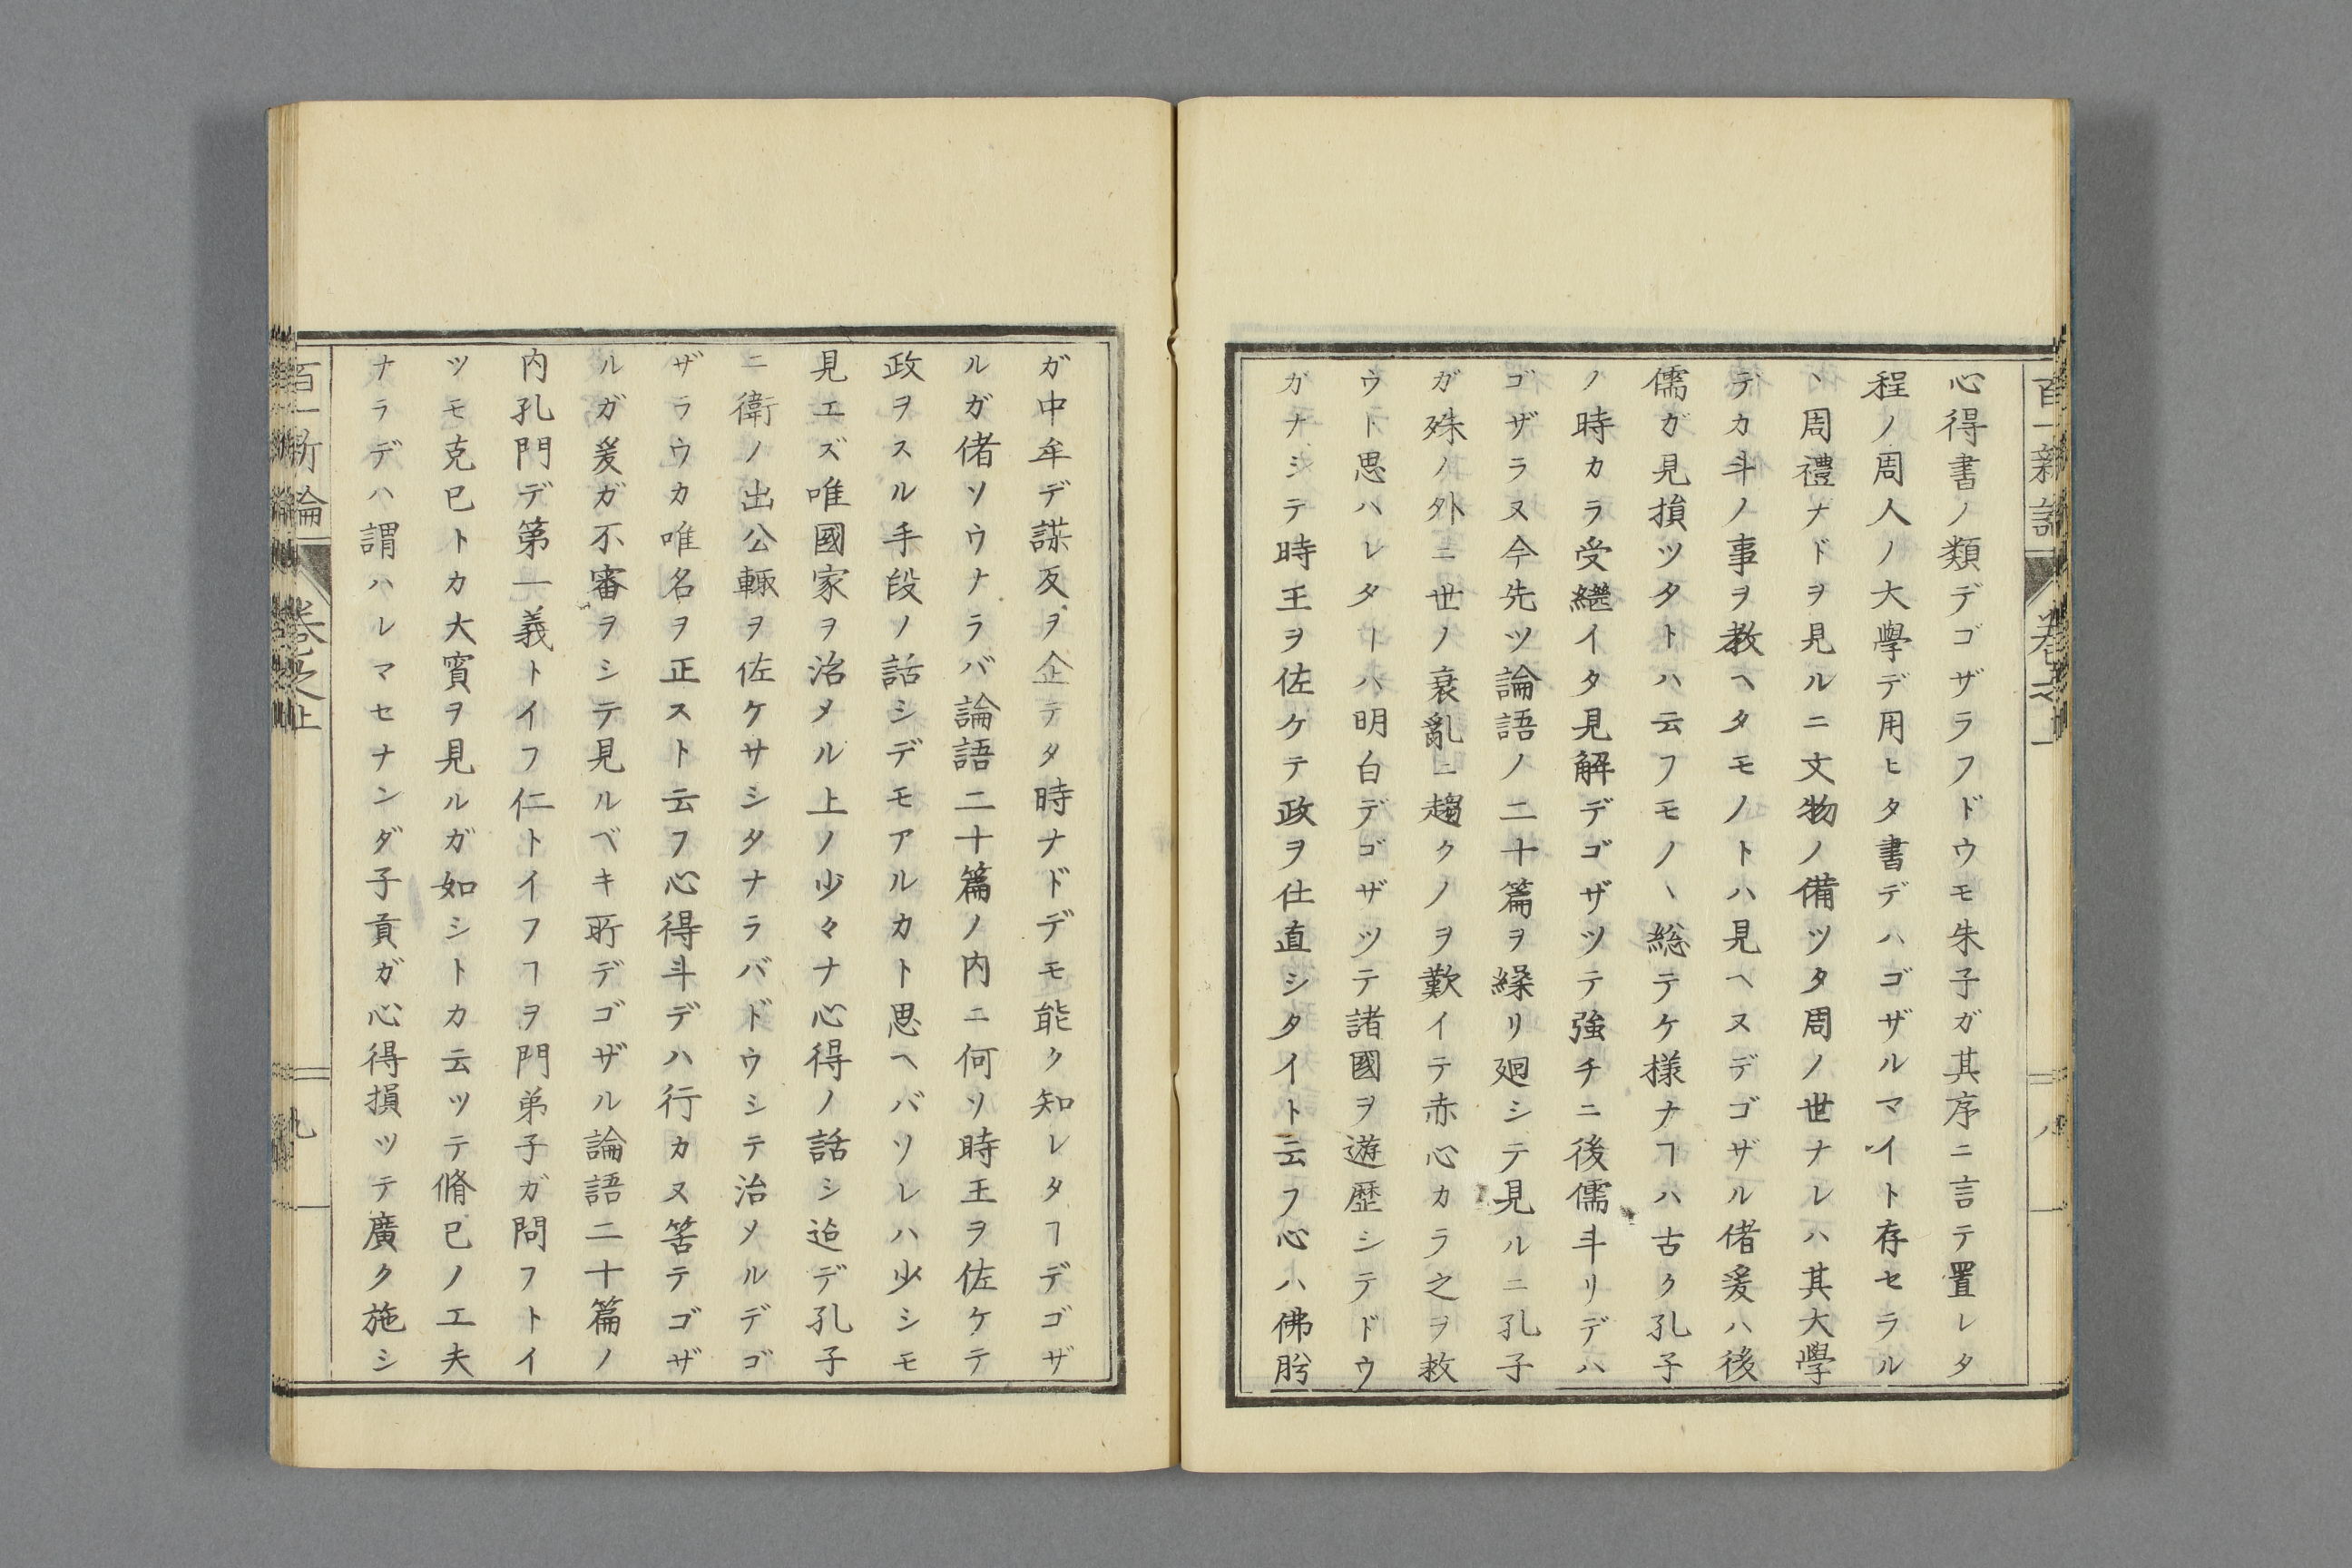 心得書ノ類デゴザラフドウモ朱子ガ其序ニ言テ置レタ
程ノ周人ノ大學デ用ヒタ書デハゴザルマイト存セラル
丶周禮ナドヲ見ルニ文物ノ備ツタ周ノ世ナレハ其大學
デカ斗ノ事ヲ教ヘタモノトハ見ヘヌデゴザル偖爰ハ後
儒ガ見損ツタトハ云フモノヽ総テケ様ナヿハ古ク孔子
ノ時カラ受繼イタ見解デゴザツテ強チニ後儒斗リデハ
ゴザラヌ今先ツ論語ノ二十篇ヲ繰リ廻シテ見ルニ孔子
ガ殊ノ外ニ世ノ衰亂ニ趨クノヲ歎イテ赤心カラ之ヲ救
ウト思ハレターハ明白デゴザツテ諸國ヲ遊歴シテドウ
ガナシテ時王ヲ佐ケテ政ヲ仕直シタイト云フ心ハ佛肸
ガ中牟デ謀反ヲ企テタ時ナドデモ能ク知レタヿデゴザ
ルガ偖ソウナラバ論語二十篇ノ内ニ何ソ時王ヲ佐ケテ
政ヲスル手段ノ話シデモアルカト思ヘバソレハ少シモ
見エズ唯國家ヲ治メル上ノ少々ナ心得ノ話シ迨デ孔子
ニ衛ノ出公輙ヲ佐ケサシタナラバドウシテ治メルデゴ
ザラウカ唯名ヲ正スト云フ心得斗デハ行カヌ筈テゴザ
ルガ爰ガ不審ヲシテ見ルベキ所デゴザル論語二十篇ノ
内孔門デ第一義トイフ仁トイフヿヲ門弟子ガ問フトイ
ツモ克巳トカ大賓ヲ見ルガ如シトカ云ツテ脩己ノエ夫
ナラデハ謂ハレマセナンダ子貢ガ心得損ツテ廣ク施シ
百一新論
卷之上
九